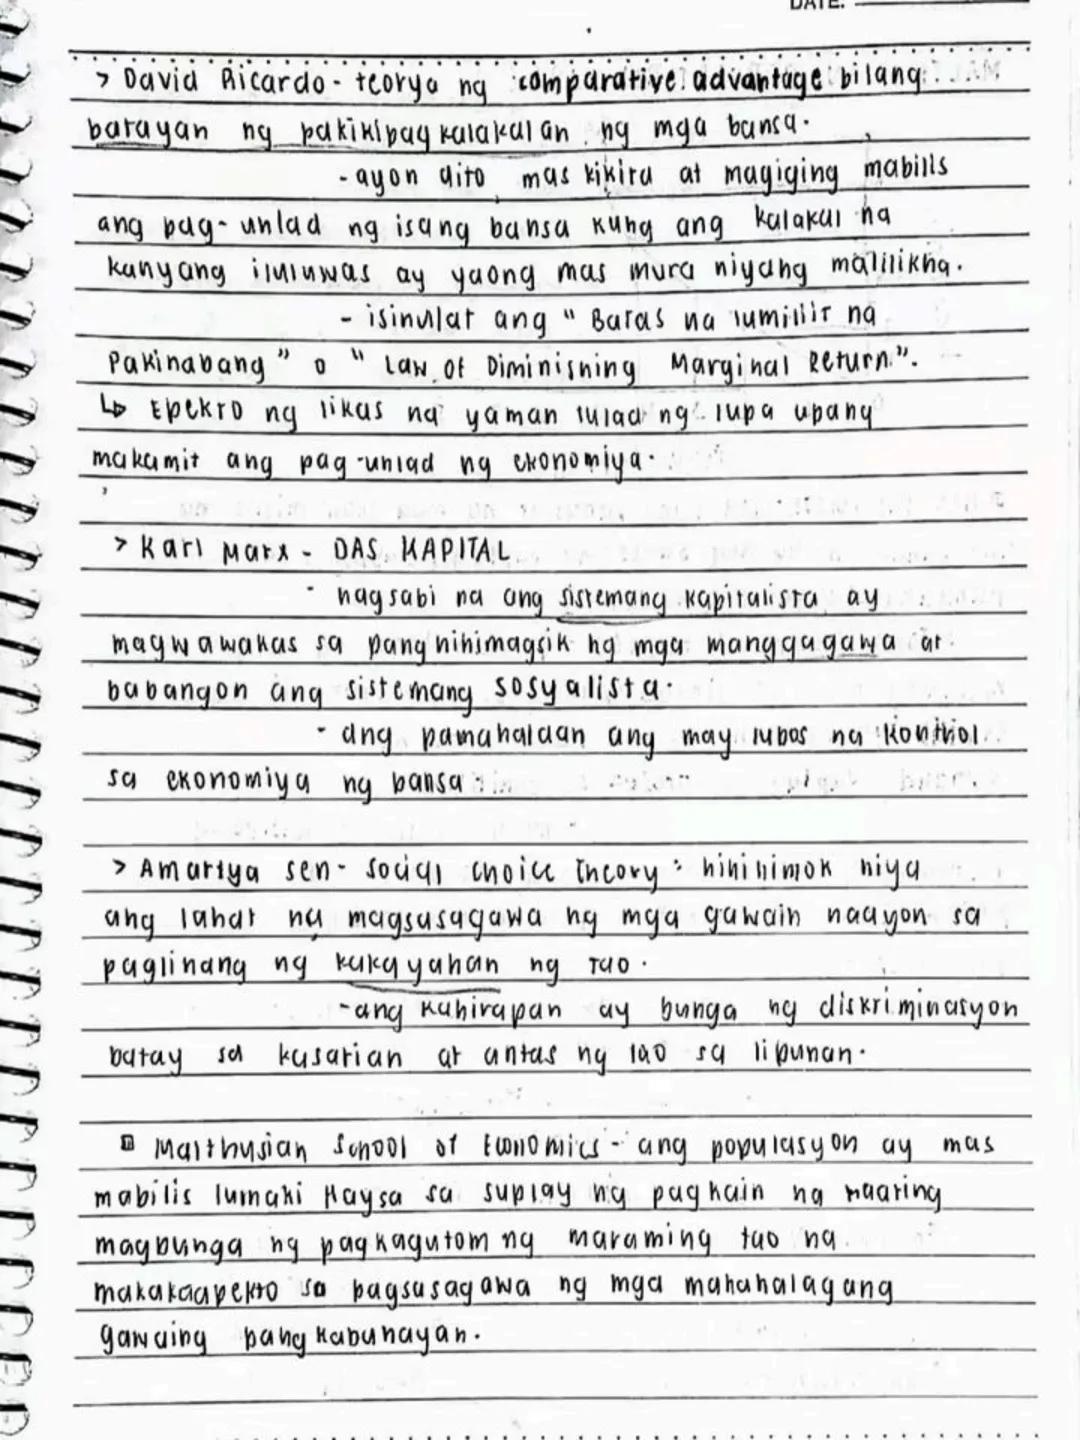 DATE:
> David Ricardo - teorya ng comparative advantage bilang
batayan ng pakikipagkalakalan ng mga bansa.
- ayon dito mas kikita at magiging mabilis
ang pag-unlad ng isang bansa kung ang kalakal na
kanyang iluluwas ay yaong mas mura niyang malilikha.
- isinulat ang "Batas na lumiliit na
Pakinabang" o "Law of Diminishing Marginal Return".
↳ Epekto ng likas na yaman tulad ng lupa upang
makamit ang pag-unlad ng ekonomiya.
> Karl Marx - DAS KAPITAL
- nagsabi na ang sistemang kapitalista ay
magwawakas sa panghihimagsik ng mga manggagawa at
babangon ang sistemang sosyalista.
- ang pamahalaan ang may lubos na kontrol
sa ekonomiya ng bansa.
> Amartya sen - Social choice Theory : hinihimok niya
ang lahat na magsasagawa ng mga gawain naayon sa
paglinang ng kakayahan ng tao.
- ang kahirapan ay bunga ng diskriminasyon
batay sa kasarian at antas ng tao sa lipunan.
Malthusian School of Economics - ang populasyon ay mas
mabilis lumaki kaysa sa suplay ng pagkain na maaring
magbunga ng pagkagutom ng maraming tao na
makakaapekto sa pagsasagawa ng mga mahahalagang
gawaing pangkabuhayan.